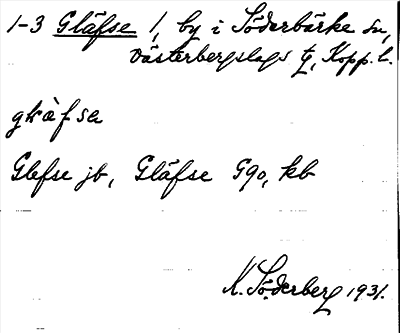 1-3 Gläfse 1, by i Söderbärke sn,
Västerbergslags tg, Kopp. l.
glàfsa
Glefse jb, Gläfse G90, kb
K. Söderberg 1931.